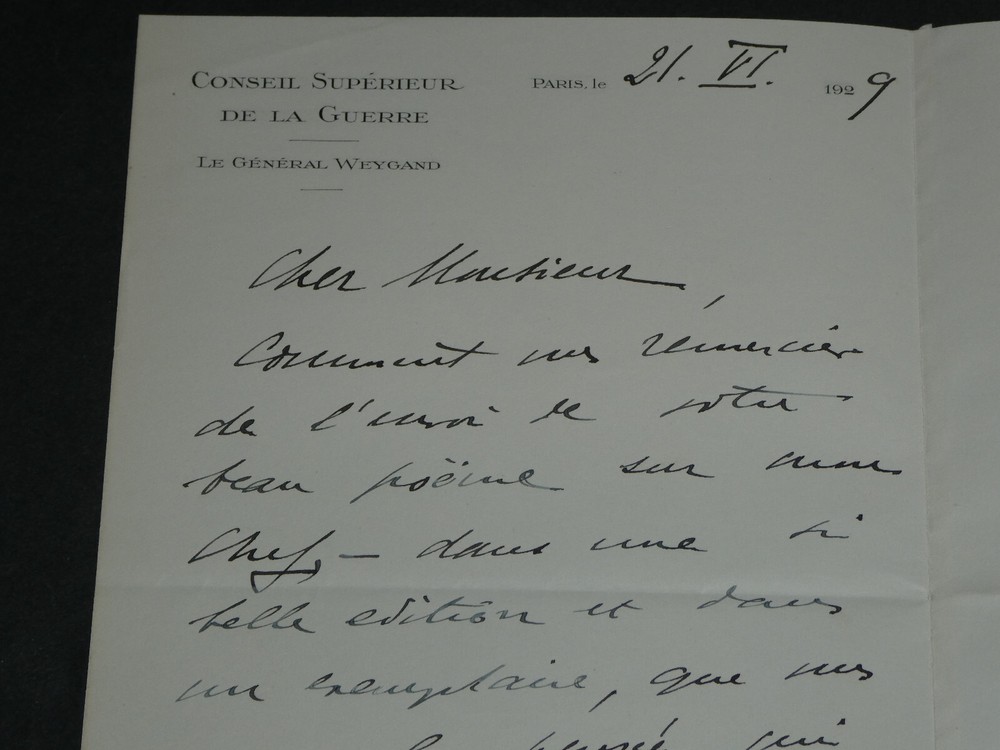 CONSEIL SUPÉRIEUR
DE LA GUERRE
LE GÉNÉRAL WEYGAND
PARIS, le 21. VI. 1929
Cher Monsieur,
Comment vous remercier
de l'envoi de votre
beau poëme sur mon
Chef, — dans une si
belle edition et dans
un exemplaire, que vous
pensée qui